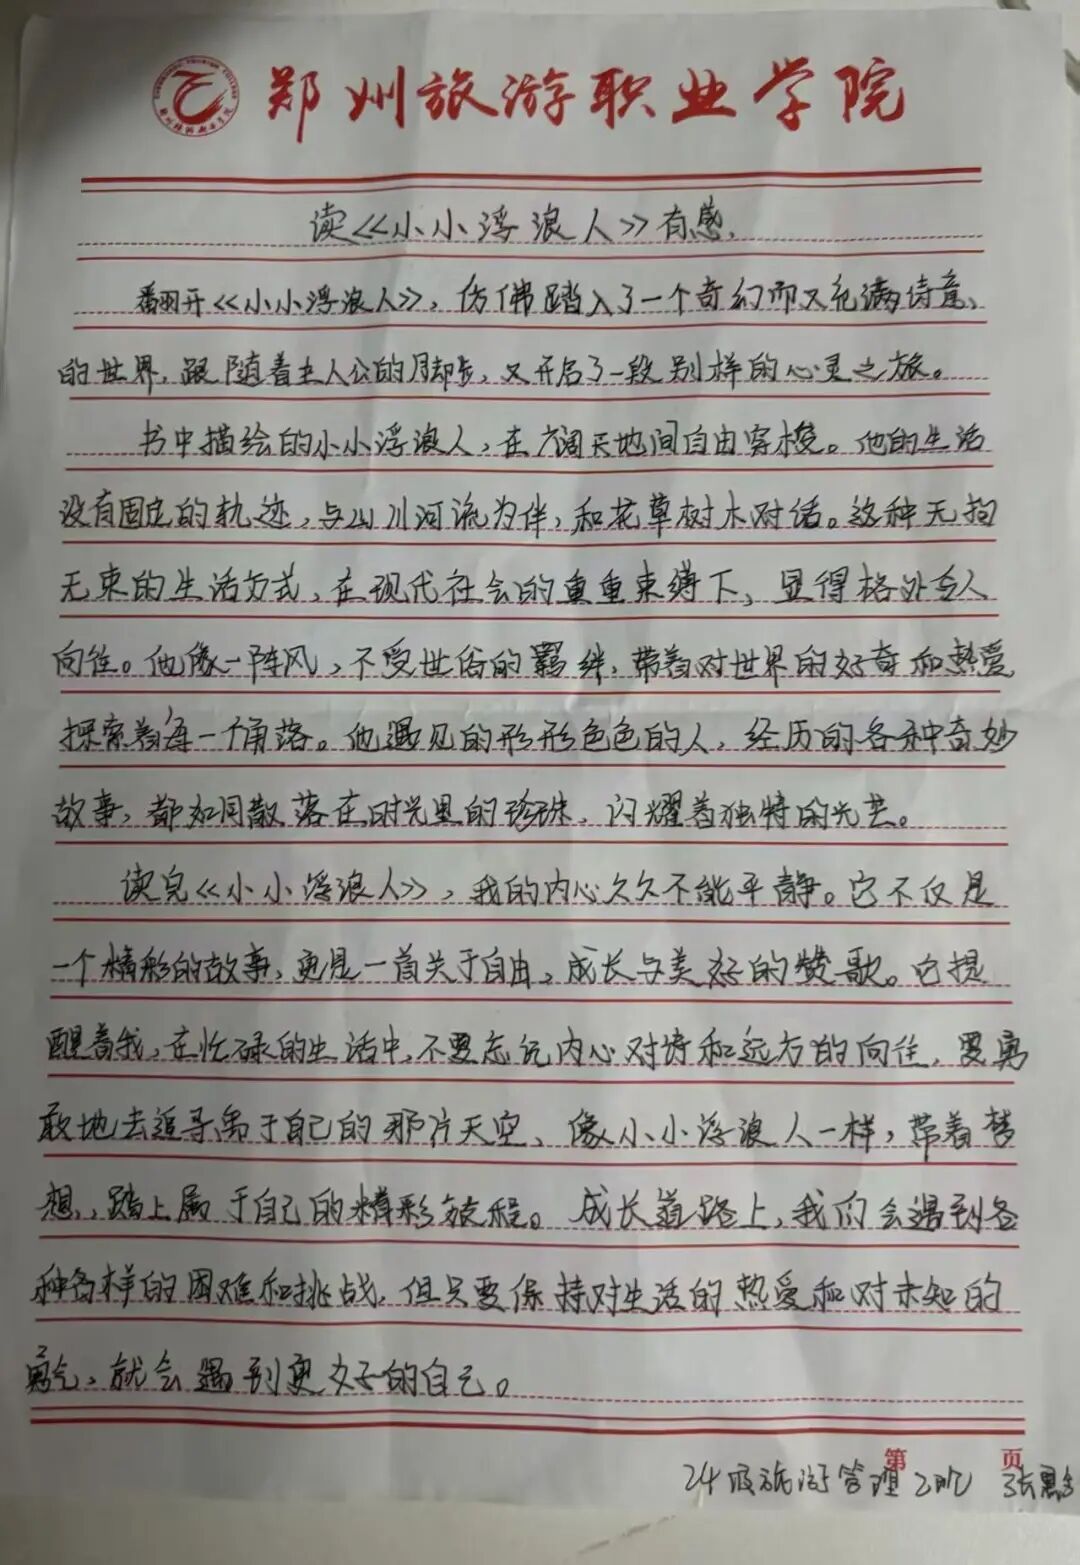 郑州旅游职业学院
读《小小浮浪人》有感.
翻开《小小浮浪人》，仿佛踏入了一个奇幻而又充满诗意、
的世界，跟随着主人公的脚步，又开启了一段别样的心灵之旅。
书中描绘的小小浮浪人，在广阔天地间自由穿梭。他的生活
没有固定的轨迹，与山川河流为伴，和花草树木对话。这种无拘
无束的生活方式，在现代社会的重重束缚下，显得格外令人
向往。他像一阵风，不受世俗的羁绊，带着对世界的好奇和热爱
探索着每一个角落。他遇见的形形色色的人，经历的各种奇妙
故事，都如同散落在时光里的珍珠，闪耀着独特的光芒。
读完《小小浮浪人》，我的内心久久不能平静。它不仅是
一个精彩的故事，更是一首关于自由，成长与美好的赞歌。它提
醒着我，在忙碌的生活中，不要忘记内心对诗和远方的向往，要勇
敢地去追寻属于自己的那片天空、像小小浮浪人一样，带着梦
想，踏上属于自己的精彩旅程。成长道路上，我们会遇到各
种各样的困难和挑战，但只要保持对生活的热爱和对未知的
勇气，就会遇到更好的自己。
第 页
24级旅游管理2班 张